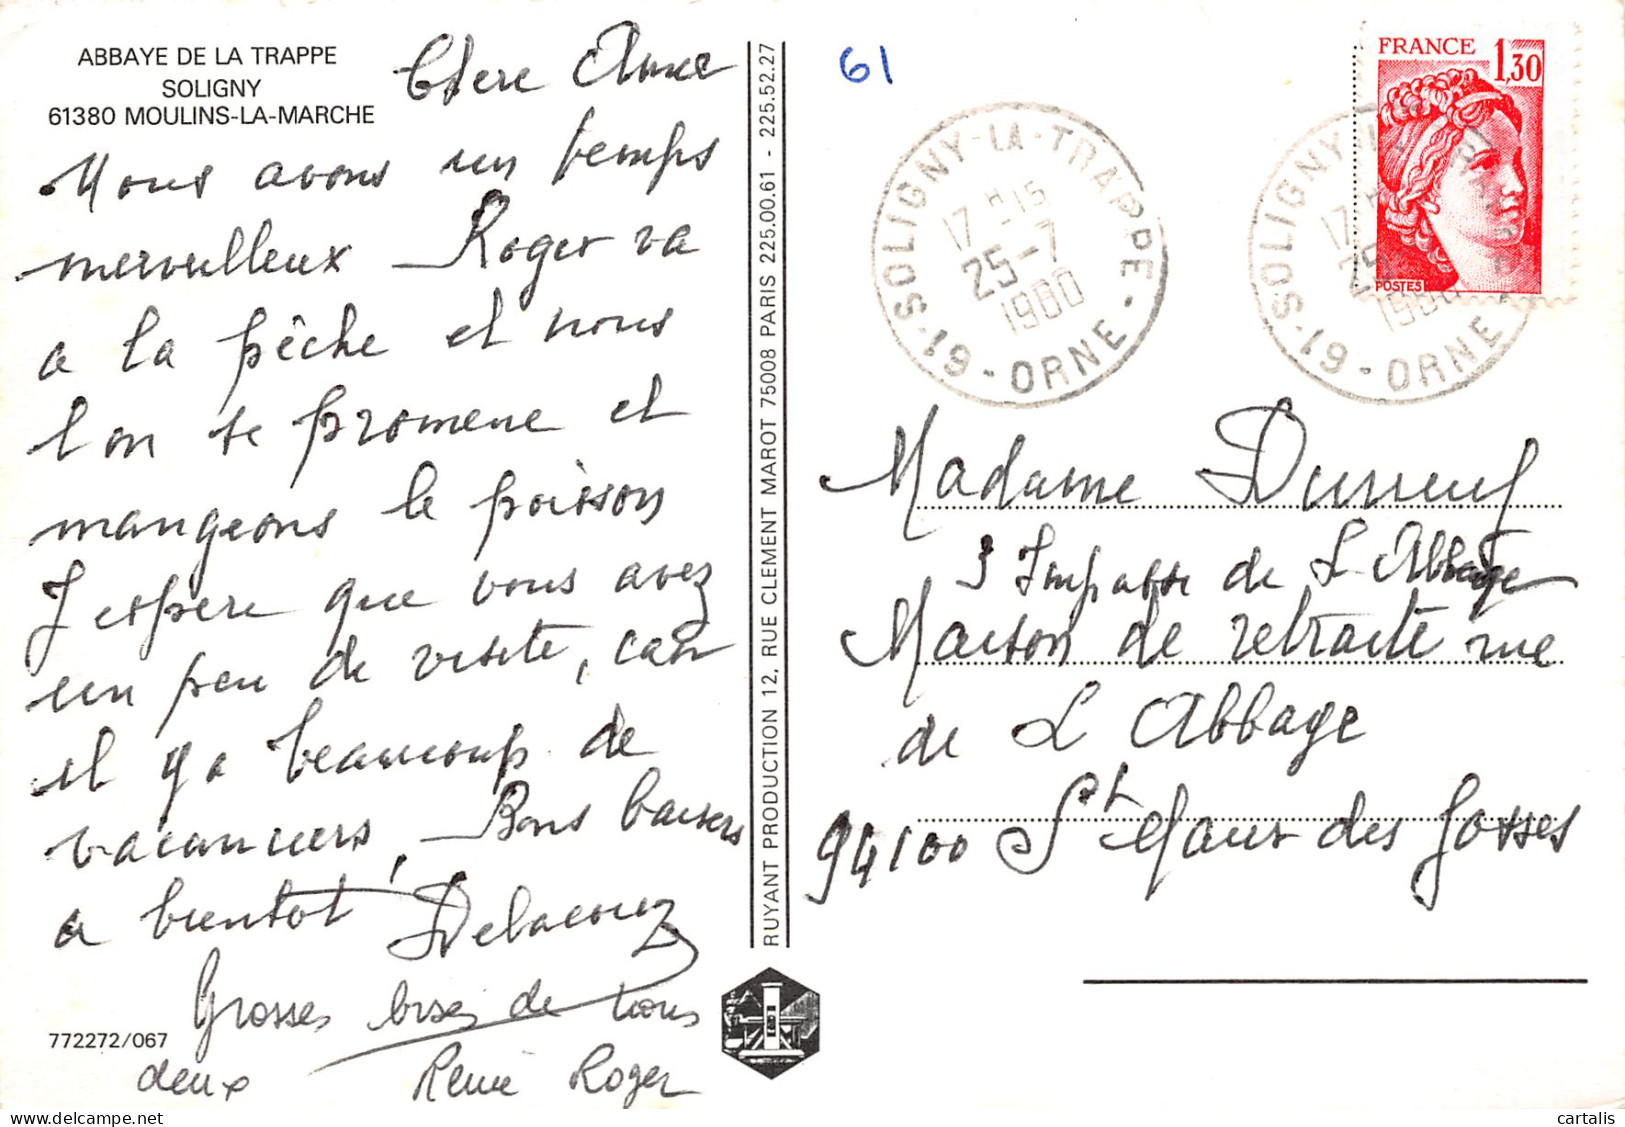 ABBAYE DE LA TRAPPE
SOLIGNY
61380 MOULINS-LA-MARCHE
Chere Amie
Nous avons un temps
merveilleux Roger va
a la pêche et nous
l on se promene et
mangeons le poisson
J espère que vous avez
un peu de visite, car
il y a beaucoup de
vacanciers, Bons baisers
a bientot Delacour
Grosses bises de tous
deux Roger
772272/067
RUYANT PRODUCTION 12, RUE CLEMENT MAROT 75008 PARIS 225.00.61 - 225.52.27
61
SOLIGNY-LA-TRAPPE
17 H15
25-7
1980
61-ORNE
SOLIGNY-LA-TRAPPE
17 H
25
1980
61-ORNE
FRANCE 1,30
POSTES
Madame
3 Impasse de L Abbaye
Maison de retraite rue
de L Abbaye
94100 St Maur des Fosses
cartalis